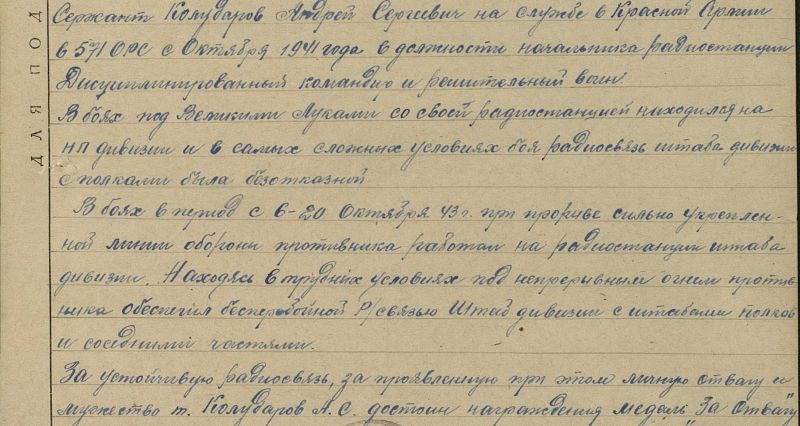 Сержант Колударов Андрей Сергеевич на службе в Красной Армии
в 571 ОРС с Октября 1941 года в должности начальника радиостанции
Дисциплинированный командир и решительный воин.
В боях под Великими Луками со своей радиостанцией находился на
НП дивизии и в самых сложных условиях боя радиосвязь штаба дивизии
с полками была безотказной
В боях в период с 6-20 Октября 43 г. при прорыве сильно укреплен-
ной линии обороны противника работал на радиостанции штаба
дивизии. Находясь в трудных условиях под непрерывным огнем против-
ника обеспечил бесперебойной Р/связью Штаб дивизии с штабами полков
и соседними частями.
За устойчивую радиосвязь, за проявленную при этом личную отвагу и
мужество т. Колударов А.С. достоин награждения медаль "За Отвагу"
ДЛЯ ПОД